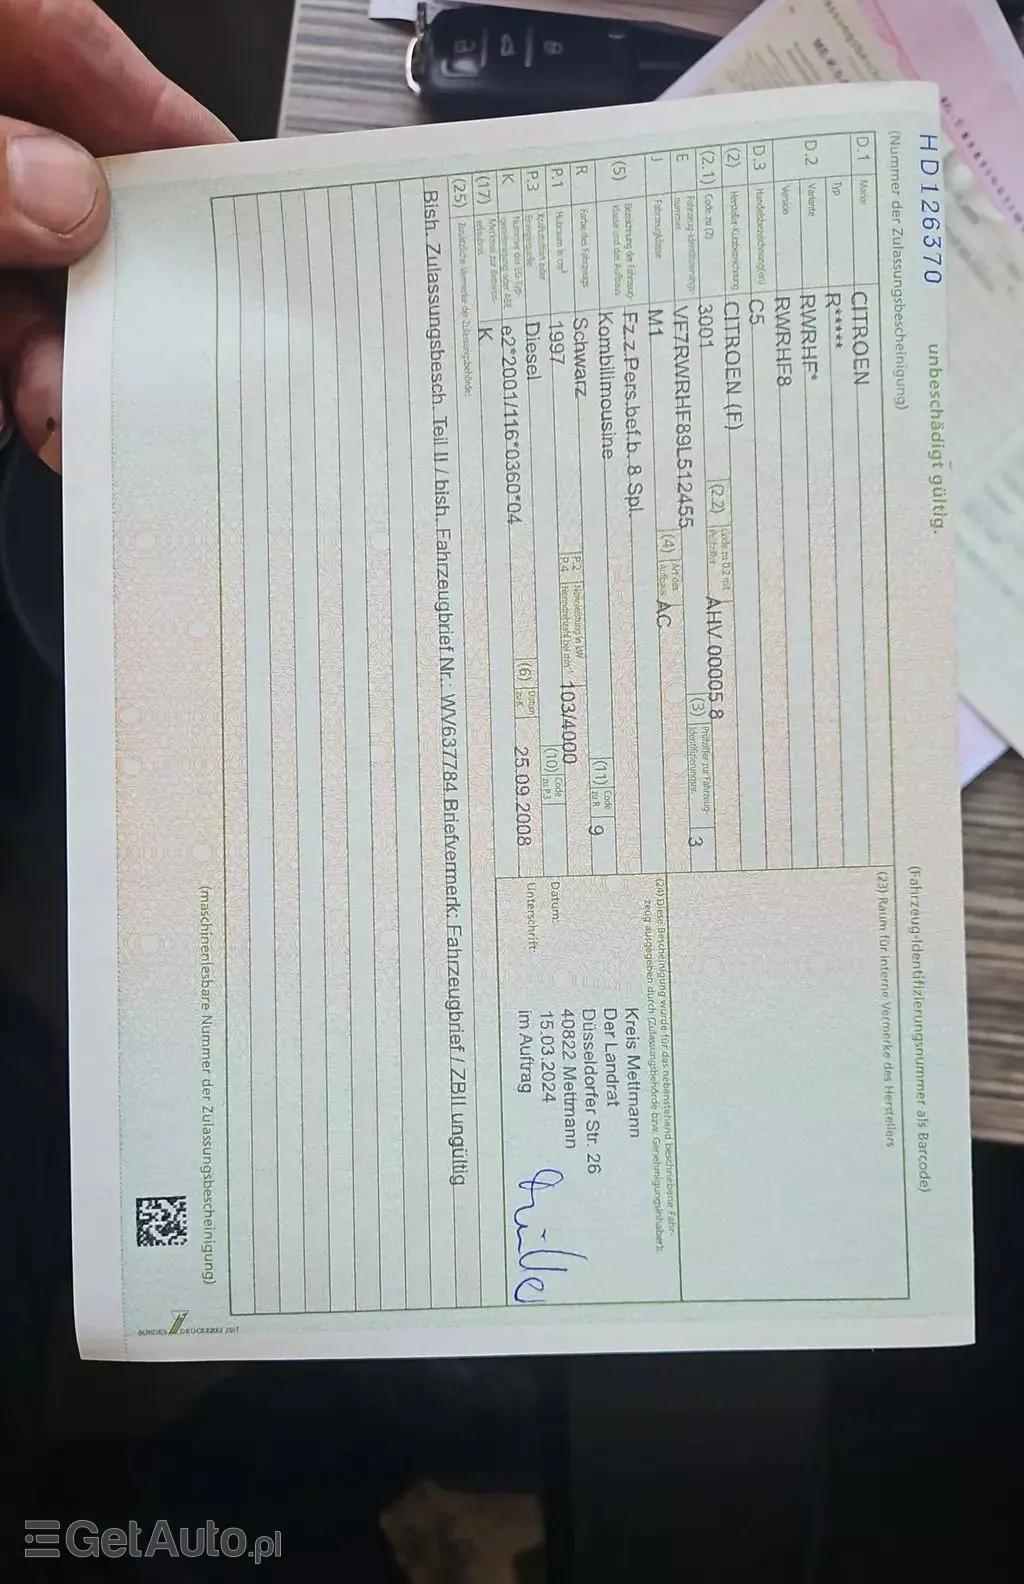 HD126370
unbeschädigt gültig.
(Nummer der Zulassungsbescheinigung)
(Fahrzeug-Identifizierungsnummer als Barcode)
D.1 Marke CITROEN
Typ R*****
D.2 Variante RWRHF*
Version RWRHF8
D.3 Handelsbezeichnung(en) C5
(2) Hersteller-Kurzbezeichnung CITROEN (F)
(2.1) Code zu (2) 3001 (2.2) Code zu D.2 mit Prüfziffer AHV 00005 8
E Fahrzeug-Identifizierungsnummer VF7RWRHF89L512455 (3) Prüfziffer zur Fahrzeug-Identifizierungsnr. 3
J Fahrzeugklasse M1 (4) Art des Aufbaus AC
(5) Bezeichnung der Fahrzeugklasse und des Aufbaus Fz.z.Pers.bef.b. 8 Spl.
Kombilimousine
R Farbe des Fahrzeugs Schwarz (11) Code zu R 9
P.1 Hubraum in cm³ 1997 P.2 P.4 Nennleistung in kW Nenndrehzahl bei min⁻¹ 103/4000
P.3 Kraftstoffart oder Energiequelle Diesel (10) Code zu P.3
K Nummer der EG-Typgenehmigung oder ABE e2*2001/116*0360*04 (6) Datum zu K 25.09.2008
(17) Merkmal zur Betriebserlaubnis K
(23) Raum für interne Vermerke des Herstellers
(24) Diese Bescheinigung wurde für das nebenstehend beschriebene Fahr-
zeug ausgegeben durch (Zulassungsbehörde bzw. Genehmigungsinhaber):
Kreis Mettmann
Der Landrat
Düsseldorfer Str. 26
40822 Mettmann
Datum: 15.03.2024
Unterschrift: im Auftrag
(25) Zusätzliche Vermerke der Zulassungsbehörde:
Bish. Zulassungsbesch. Teil II / bish. Fahrzeugbrief Nr.: WV637784 Briefvermerk: Fahrzeugbrief / ZBII ungültig
(maschinenlesbare Nummer der Zulassungsbescheinigung)
BUNDESDRUCKEREI
GetAuto.pl